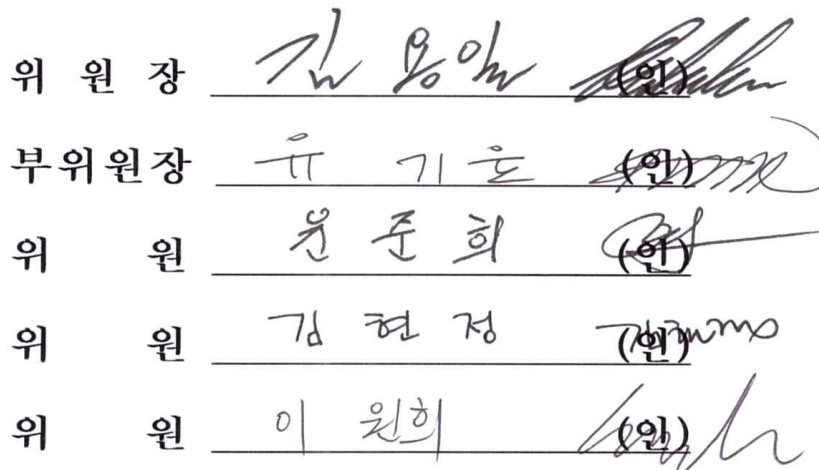 위 원 장 김 용일 (인)
부위원장 유 기윤 (인)
위 원 윤 준 희 (인)
위 원 김 현 정 (인)
위 원 이 원희 (인)